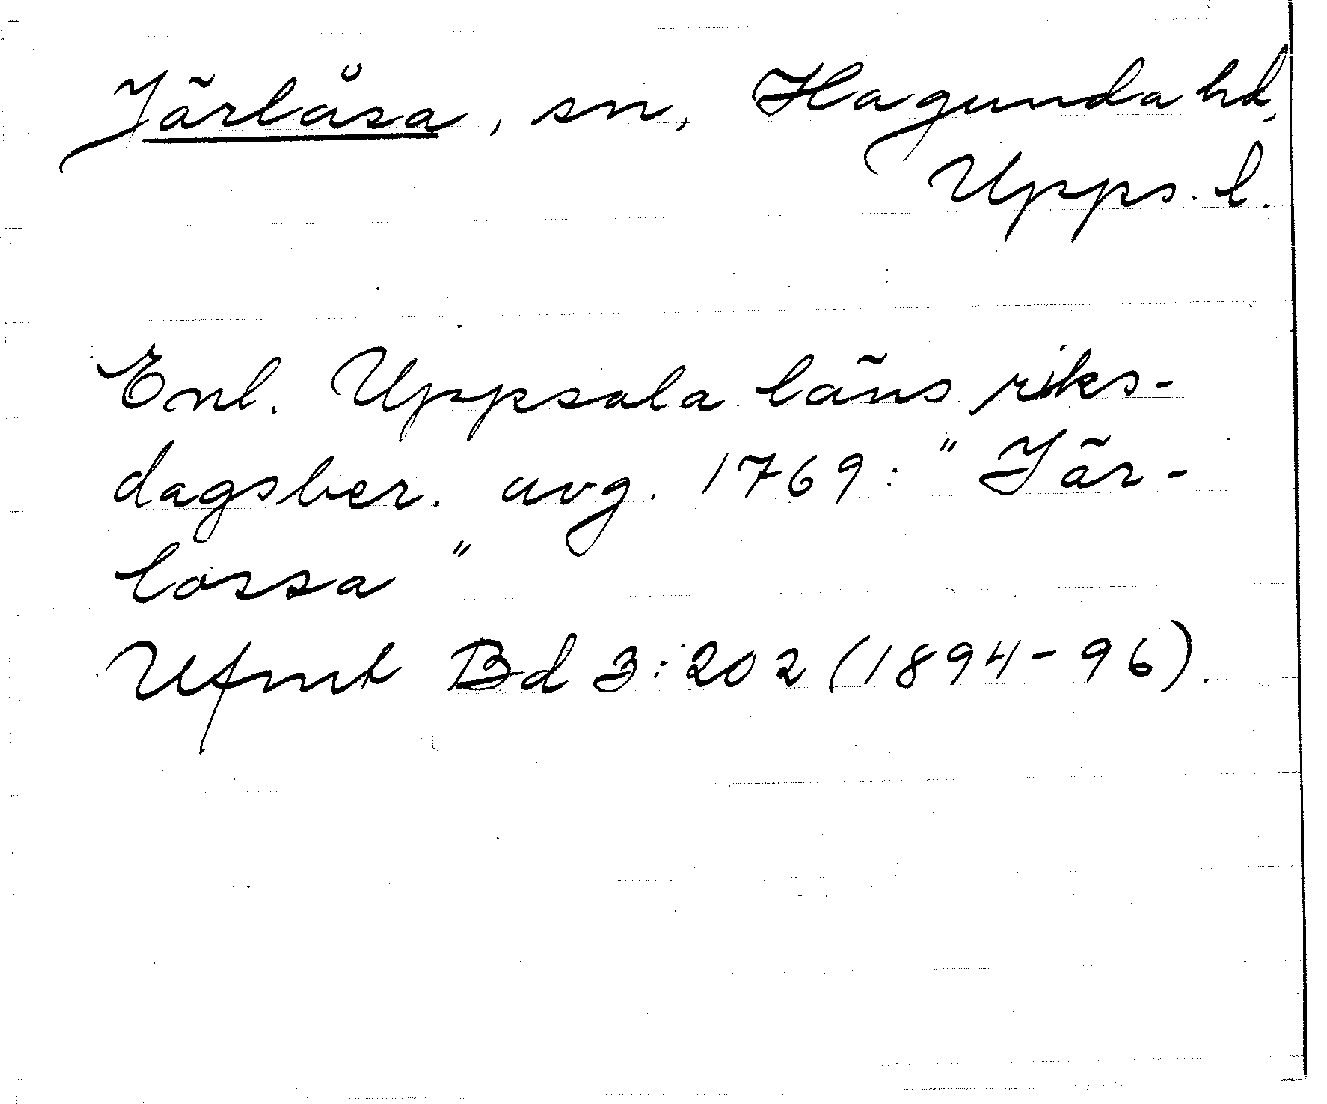 Järlåsa, sn, Hagunda hd,
Upps. l.
Enl. Uppsala läns riks-
dagsber. avg. 1769: "Jär-
lossa"
Ufmt Bd 3:202 (1894-96).